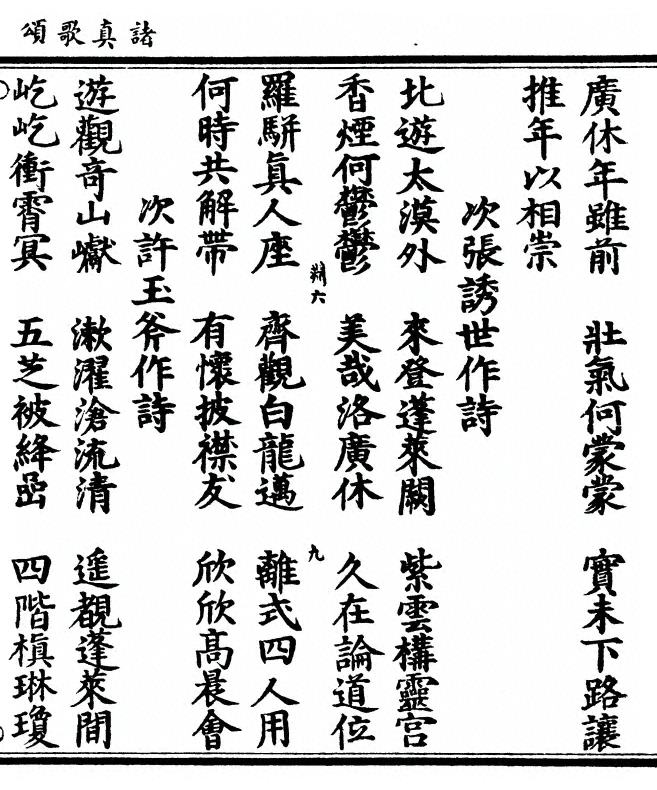 諸真歌頌
廣休年雖前 壯氣何蒙蒙 實未下路讓
推年以相崇
次張誘世作詩
北遊太漠外 來登蓬萊闕 紫雲構靈宮
香煙何鬱鬱 美哉洛廣休 久在論道位
羅駢真人座 齊觀白龍邁 離式四人用
何時共解帶 有懷披襟友 欣欣高晨會
次許玉斧作詩
遊觀奇山巘 漱濯滄流清 遥覩蓬萊間
屹屹衝霄冥 五芝被絳嵒 四階植琳瓊
六
九